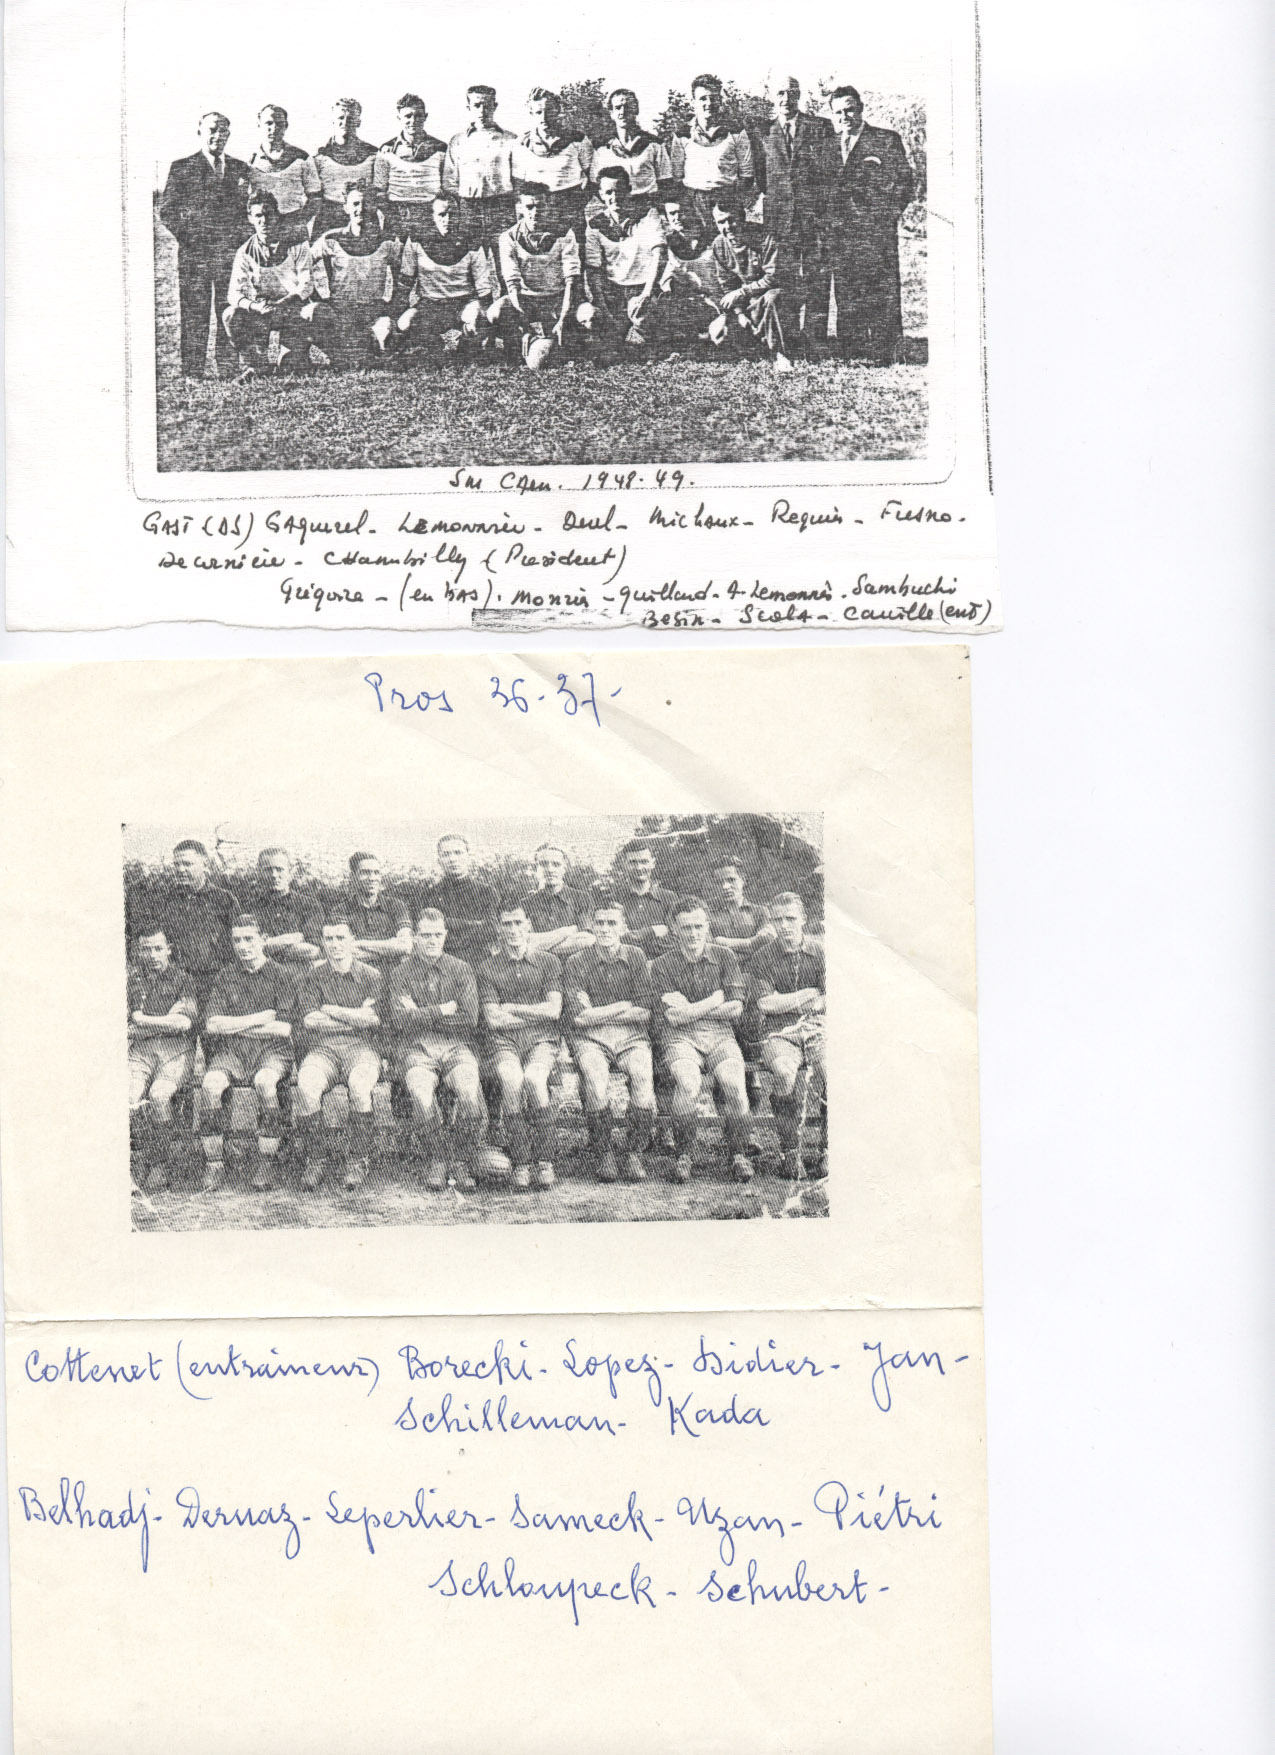 SM CAen. 1948-49.
GAST (DS) GAquerel - LEmonnier - Deul - Michaux - Requin - Fresno -
Decarnière - CHambilly (President)
Grégoire - (en BAS). Monzin - Guilland - A. Lemonnier - Sambuchi
Besin - Scola - Cauville (ent)
Pros 36-37-
Cottenet (entraîneur) Borecki - Lopez - Didier - Jan -
Schilleman - Kada
Belhadj - Dernaz - Leperlier - Sameck - Uzan - Piétri
Schloupeck - Schubert -